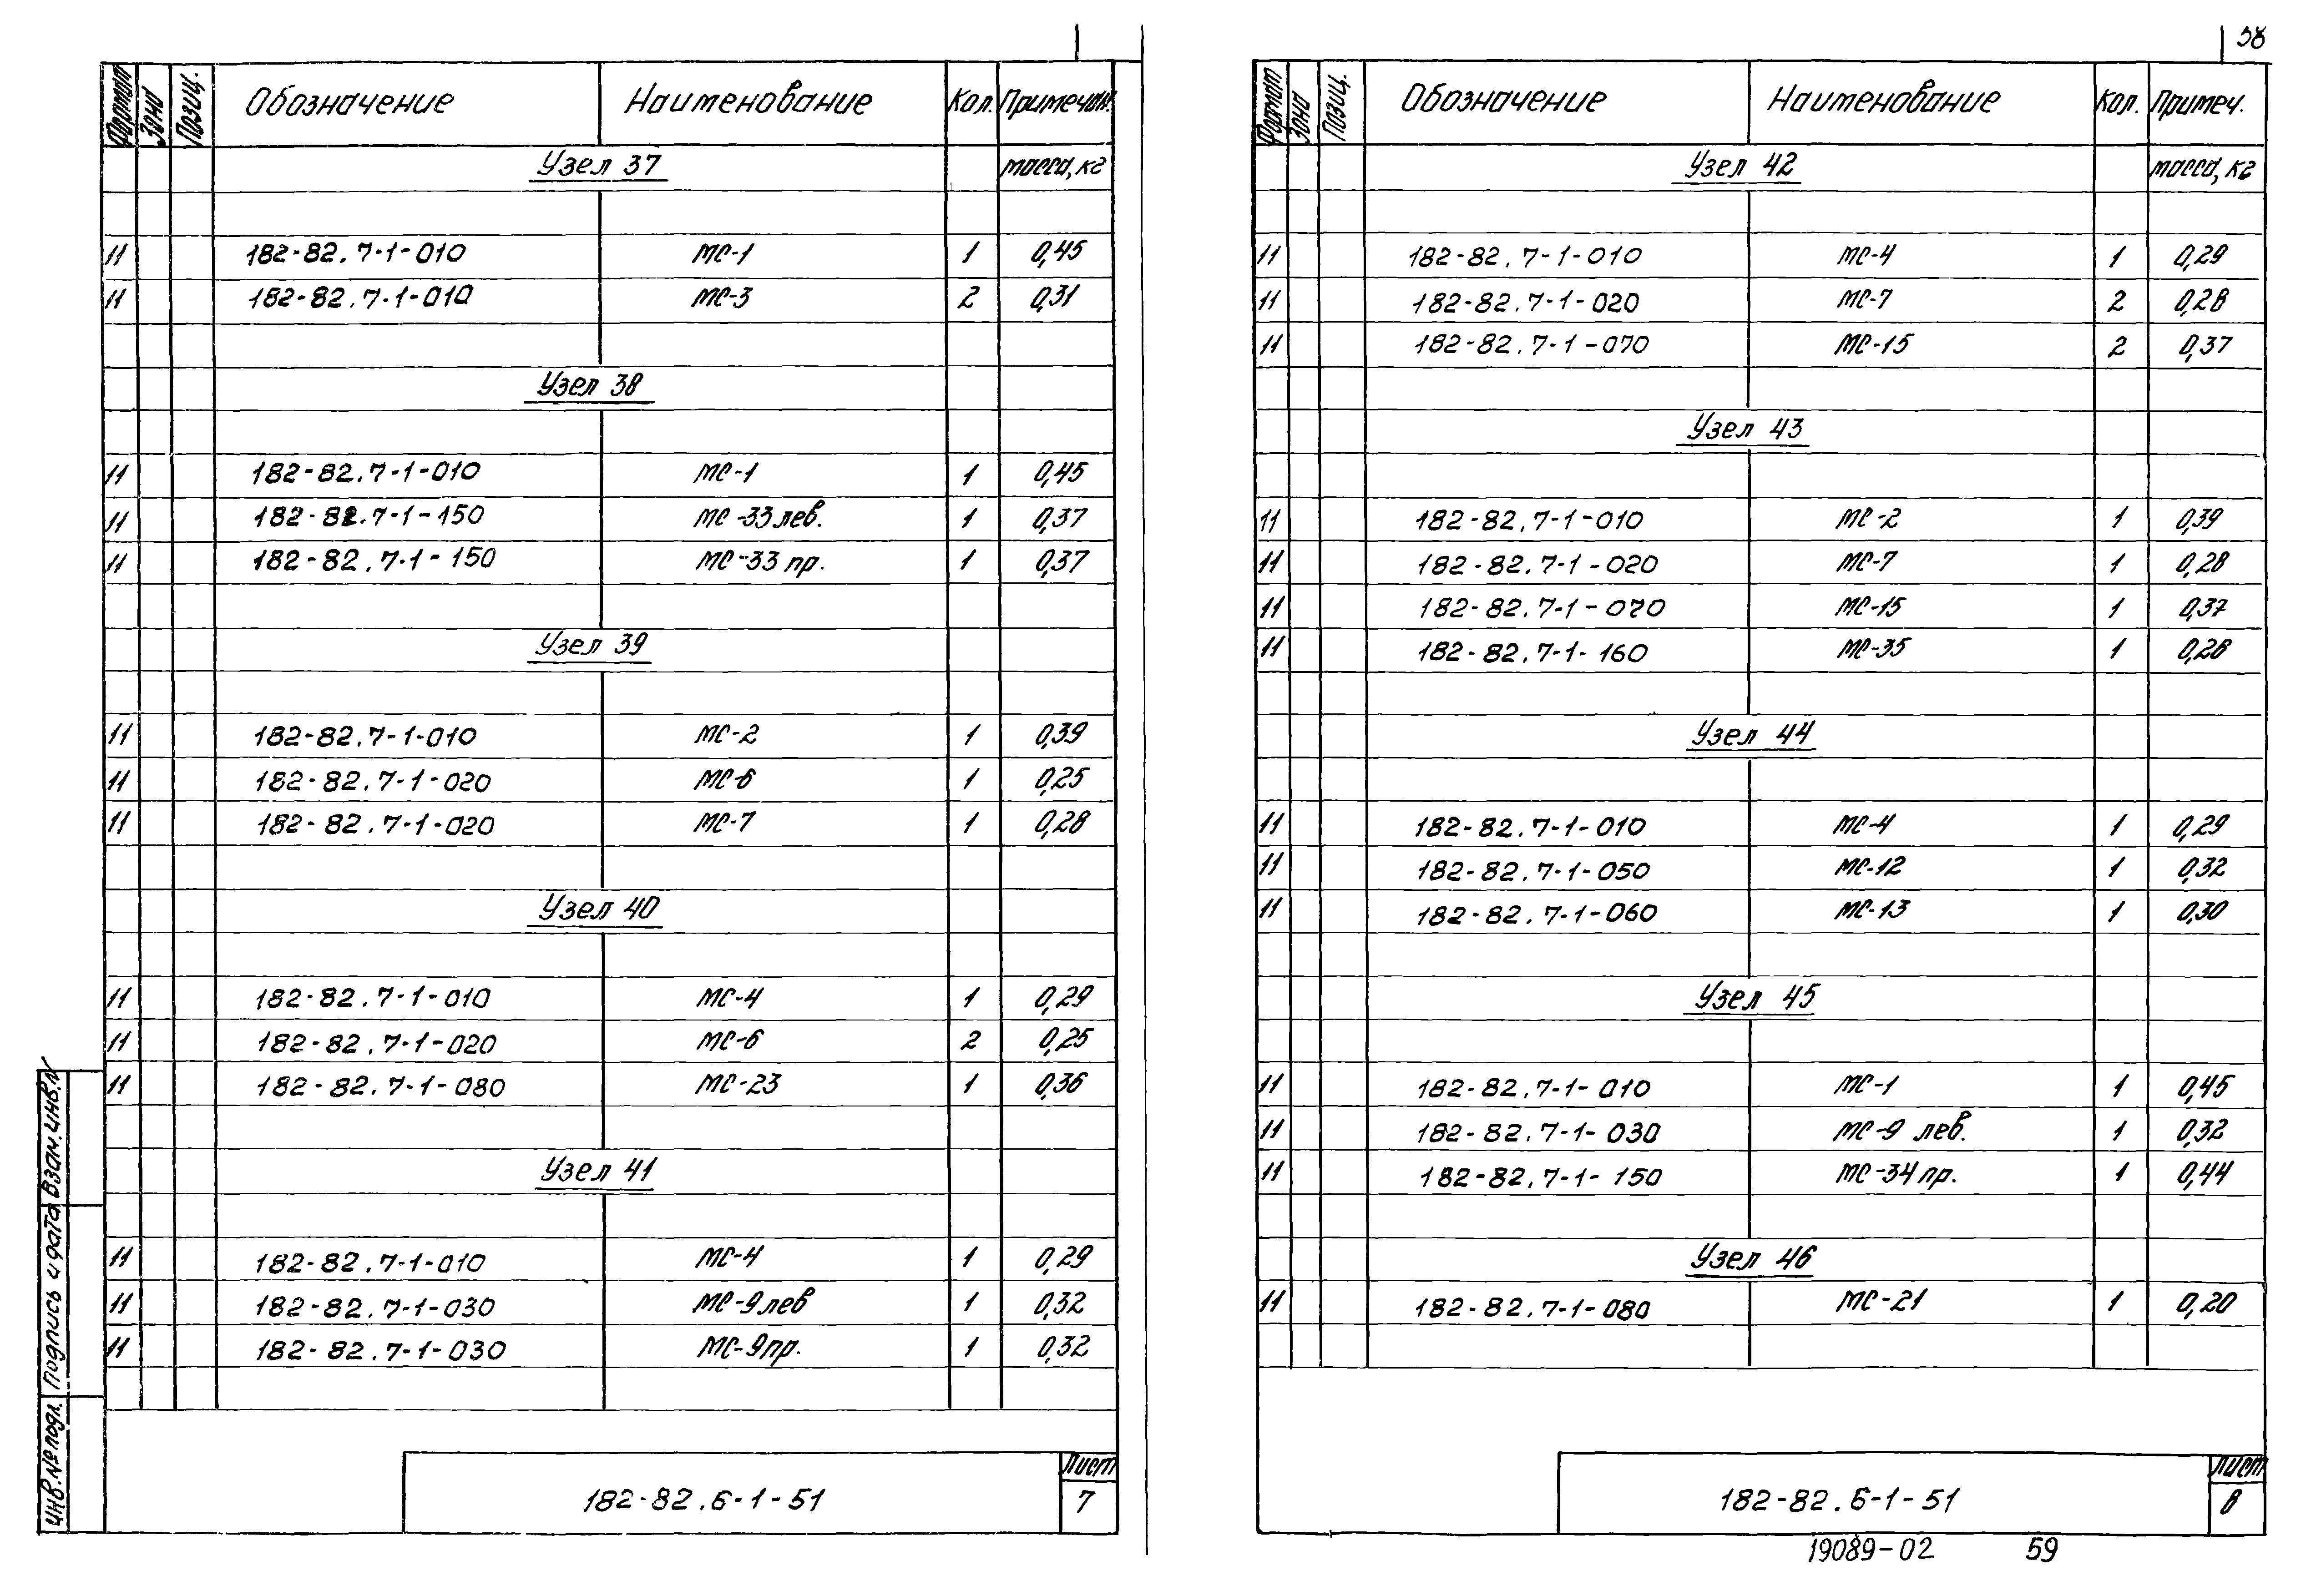 Формат Зона Позиц. Обозначение Наименование Кол. Примечан.
Узел 37 масса, кг
11 182-82.7-1-010 МС-1 1 0,45
11 182-82.7-1-010 МС-3 2 0,31
Узел 38
11 182-82.7-1-010 МС-1 1 0,45
11 182-82.7-1-150 МС-33 лев. 1 0,37
11 182-82.7-1-150 МС-33 пр. 1 0,37
Узел 39
11 182-82.7-1-010 МС-2 1 0,39
11 182-82.7-1-020 МС-6 1 0,25
11 182-82.7-1-020 МС-7 1 0,28
Узел 40
11 182-82.7-1-010 МС-4 1 0,29
11 182-82.7-1-020 МС-6 2 0,25
11 182-82.7-1-080 МС-23 1 0,36
Узел 41
11 182-82.7-1-010 МС-4 1 0,29
11 182-82.7-1-030 МС-9 лев 1 0,32
11 182-82.7-1-030 МС-9 пр. 1 0,32
Инв.№ подл. Подпись и дата Взам.инв.N
182-82.6-1-51
Лист
7
38
Формат Зона Позиц. Обозначение Наименование Кол. Примеч.
Узел 42 масса, кг
11 182-82.7-1-010 МС-4 1 0,29
11 182-82.7-1-020 МС-7 2 0,28
11 182-82.7-1-070 МС-15 2 0,37
Узел 43
11 182-82.7-1-010 МС-2 1 0,39
11 182-82.7-1-020 МС-7 1 0,28
11 182-82.7-1-070 МС-15 1 0,37
11 182-82.7-1-160 МС-35 1 0,26
Узел 44
11 182-82.7-1-010 МС-4 1 0,29
11 182-82.7-1-050 МС-12 1 0,32
11 182-82.7-1-060 МС-13 1 0,30
Узел 45
11 182-82.7-1-010 МС-1 1 0,45
11 182-82.7-1-030 МС-9 лев. 1 0,32
11 182-82.7-1-150 МС-34 пр. 1 0,44
Узел 46
11 182-82.7-1-080 МС-21 1 0,20
182-82.6-1-51
Лист
8
19089-02 59